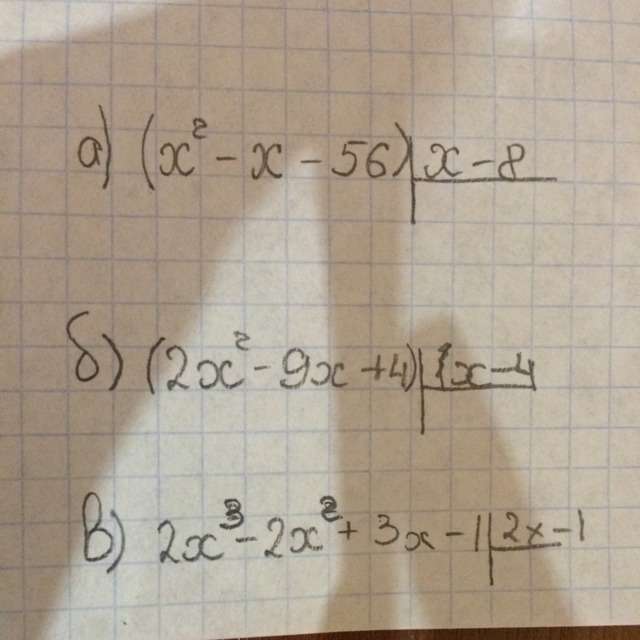 а) (x² - x - 56) | x - 8
б) (2x² - 9x + 4) | x - 4
в) 2x³ - 2x² + 3x - 1 | 2x - 1